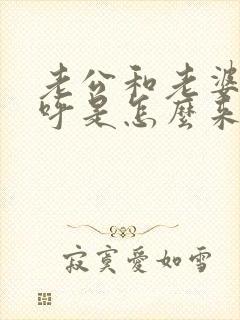 老公和老婆
呼是怎麼來
寂寞愛如雪